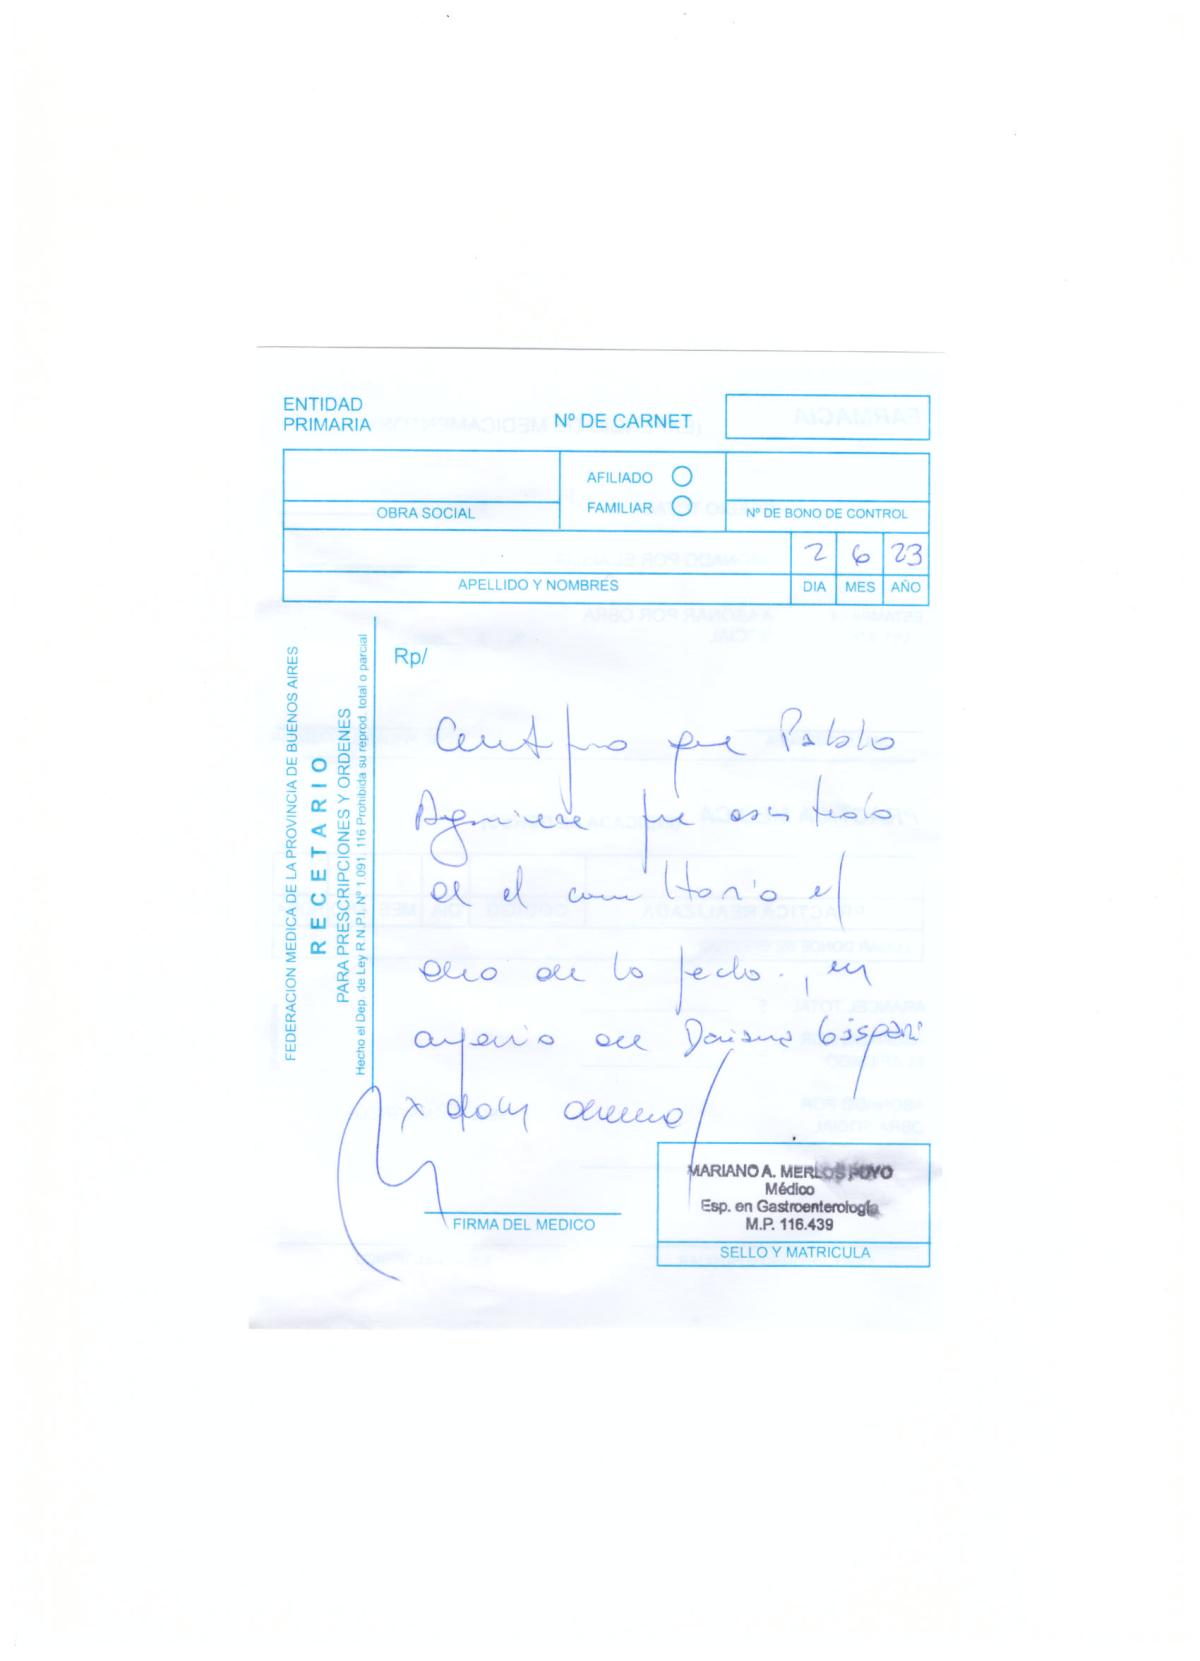 ENTIDAD
PRIMARIA
Nº DE CARNET
AFILIADO
FAMILIAR
OBRA SOCIAL
Nº DE BONO DE CONTROL
2 6 23
APELLIDO Y NOMBRES
DIA MES AÑO
FEDERACION MEDICA DE LA PROVINCIA DE BUENOS AIRES
RECETARIO
PARA PRESCRIPCIONES Y ORDENES
Hecho el Dep. de Ley R.N.P.I. Nº 1.091. 116 Prohibida su reprod. total o parcial
Rp/
Certifico que Pablo
fue asistido
en el consultorio el
día de la fecha, en
de
x dolor
MARIANO A. MERLOS PUYO
Médico
Esp. en Gastroenterología
M.P. 116.439
FIRMA DEL MEDICO
SELLO Y MATRICULA